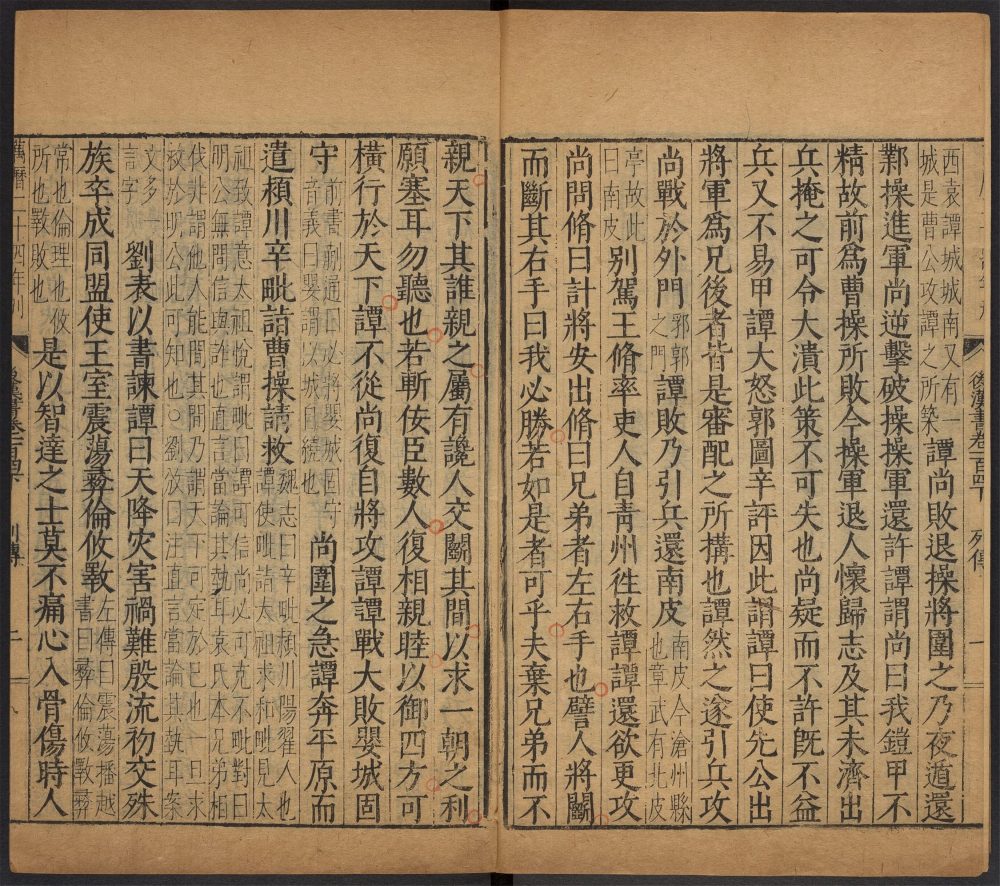 西袁譚城城南又有一
城是曹公攻譚之所築
譚尚敗退操將圍之乃夜遁還
鄴操進軍尚逆擊破操操軍還許譚謂尚曰我鎧甲不
精故前爲曹操所敗今操軍退人懷歸志及其未濟出
兵掩之可令大潰此策不可失也尚疑而不許旣不益
兵又不易甲譚大怒郭圖辛評因此謂譚曰使先公出
將軍爲兄後者皆是審配之所搆也譚然之遂引兵攻
尚戰於外門
郛郭
之門
譚敗乃引兵還南皮
南皮今滄州縣
也章武有北皮
亭故此
曰南皮
别駕王脩率吏人自青州徃救譚譚還欲更攻
尚問脩曰計將安出脩曰兄弟者左右手也譬人將鬬
而斷其右手曰我必勝若如是者可乎夫棄兄弟而不
後漢書卷一百四下
列傳
一
親天下其誰親之屬有讒人交鬬其間以求一朝之利
願塞耳勿聽也若斬佞臣數人復相親睦以御四方可
橫行於天下譚不從尚復自將攻譚譚戰大敗嬰城固
守
前書蒯通曰必將嬰城固守
音義曰嬰謂以城自繞也
尚圍之急譚奔平原而
遣潁川辛毗詣曹操請救
魏志曰辛毗潁川陽翟人也
譚使毗詣太祖求和毗見太
祖致譚意太祖悅謂毗曰譚可信尚必可克不毗對曰
明公無問信與詐也直言當論其埶耳袁氏本兄弟相
伐非謂他人能間其間乃謂天下可定於已也一旦求
救於明公此可知也○劉攽曰注直言當論其埶耳案
文多一
言字
劉表以書諫譚曰天降灾害禍難殷流初交殊
族卒成同盟使王室震蕩彝倫攸斁
左傳曰震蕩播越
書曰彝倫攸斁彝
常也倫理也攸
所也斁敗也
是以智達之士莫不痛心入骨傷時人
萬曆二十四年刊
列傳
二